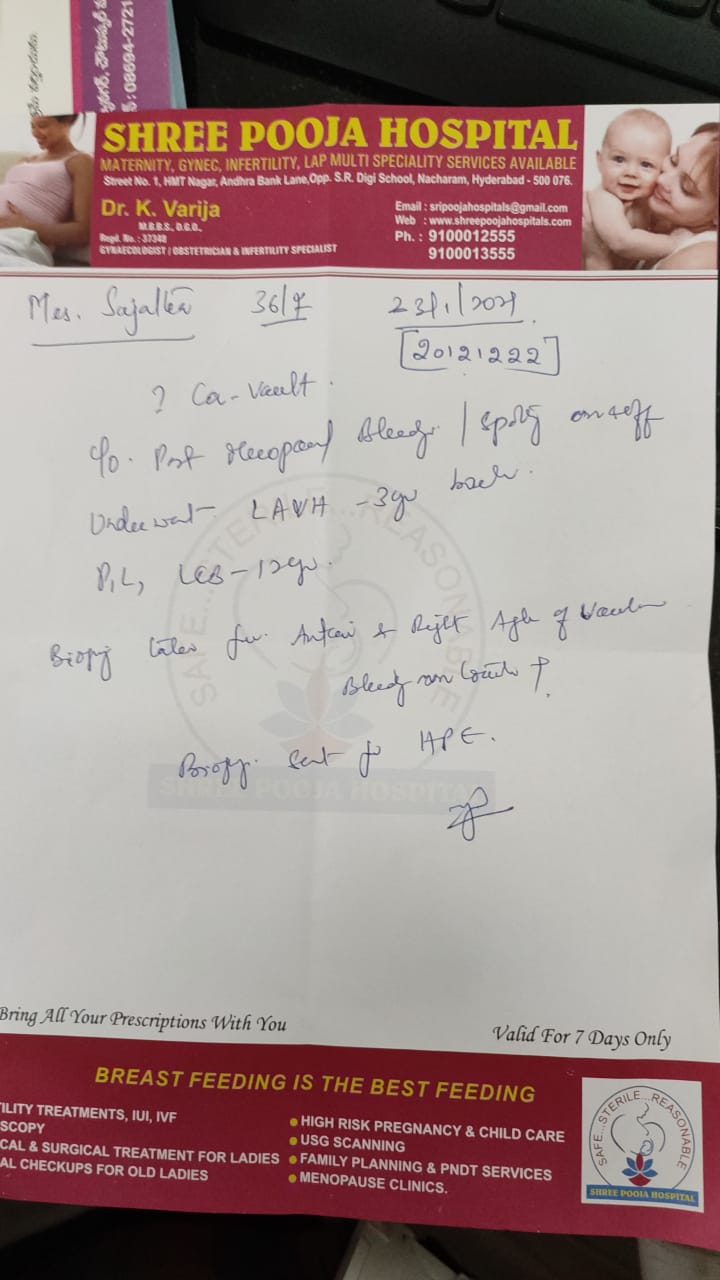 : 08694-2721
SHREE POOJA HOSPITAL
MATERNITY, GYNEC, INFERTILITY, LAP MULTI SPECIALITY SERVICES AVAILABLE
Street No. 1, HMT Nagar, Andhra Bank Lane,Opp. S.R. Digi School, Nacharam, Hyderabad - 500 076.
Dr. K. Varija
M.B.B.S., D.G.O.,
Regd. No. : 37348
GYNAECOLOGIST / OBSTETRICIAN & INFERTILITY SPECIALIST
Email : sripoojahospitals@gmail.com
Web : www.shreepoojahospitals.com
Ph. : 9100012555
9100013555
Mrs. 36/F 23/1/2021
[20121222]
? Ca-Vault.
c/o. Post Menopausal Bleeding / Spotting on & off
Underwent LAVH - 3yr back.
P1L1 LCB - 12yr.
Biopsy taken from & Right Angle of Vault
Bleed on touch +.
Biopsy. Sent for HPE.
SAFE...STERILE...REASONABLE
SHREE POOJA HOSPITAL
Bring All Your Prescriptions With You
Valid For 7 Days Only
BREAST FEEDING IS THE BEST FEEDING
ILITY TREATMENTS, IUI, IVF
SCOPY
CAL & SURGICAL TREATMENT FOR LADIES
AL CHECKUPS FOR OLD LADIES
HIGH RISK PREGNANCY & CHILD CARE
USG SCANNING
FAMILY PLANNING & PNDT SERVICES
MENOPAUSE CLINICS.
SAFE...STERILE...REASONABLE
SHREE POOJA HOSPITAL